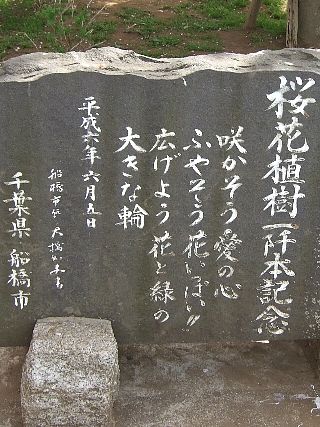 桜花植樹一阡本記念
咲かそう愛の心
ふやそう花いっぱい!!
広げよう花と緑の
大きな輪
平成六年六月五日
船橋市長 大橋和夫書
千葉県船橋市